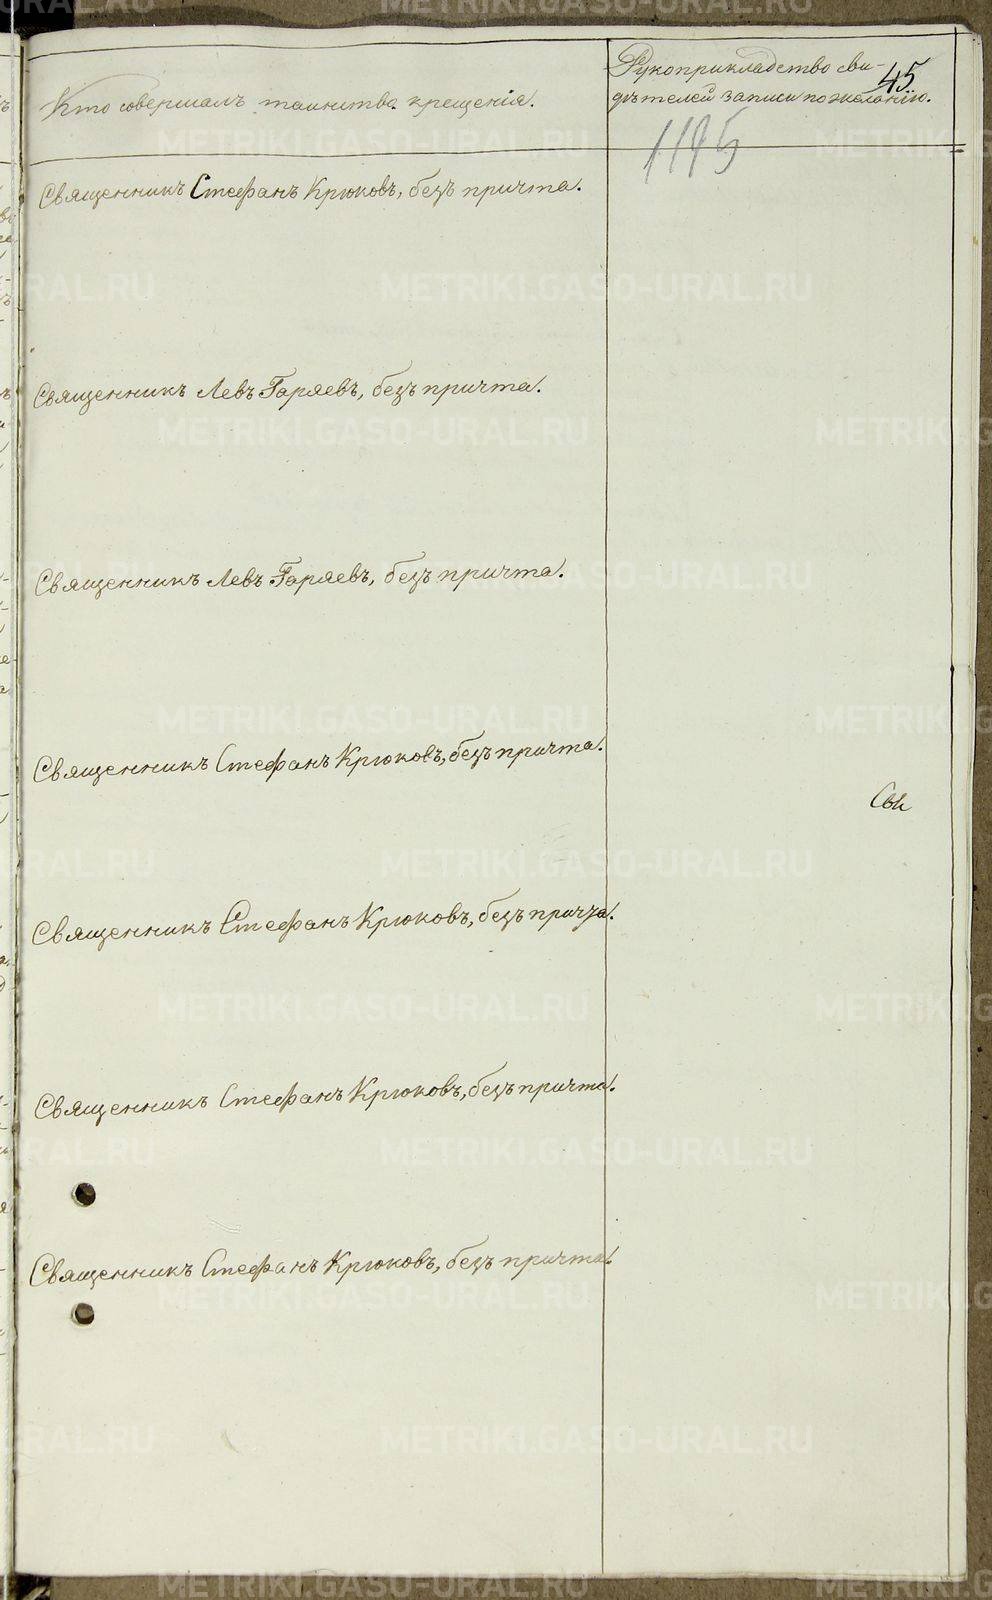 Кто совершалъ таинство крещенія.
Рукоприкладство сви-
дѣтелей записи по желанію.
45.
1195
Священникъ Стефанъ Крюковъ, безъ причта.
Священникъ Левъ Гаряевъ, безъ причта.
Священникъ Левъ Гаряевъ, безъ причта.
Священникъ Стефанъ Крюковъ, безъ причта.
Священникъ Стефанъ Крюковъ, безъ причта.
Священникъ Стефанъ Крюковъ, безъ причта.
Священникъ Стефанъ Крюковъ, безъ причта.
METRIKI.GASO-URAL.RU